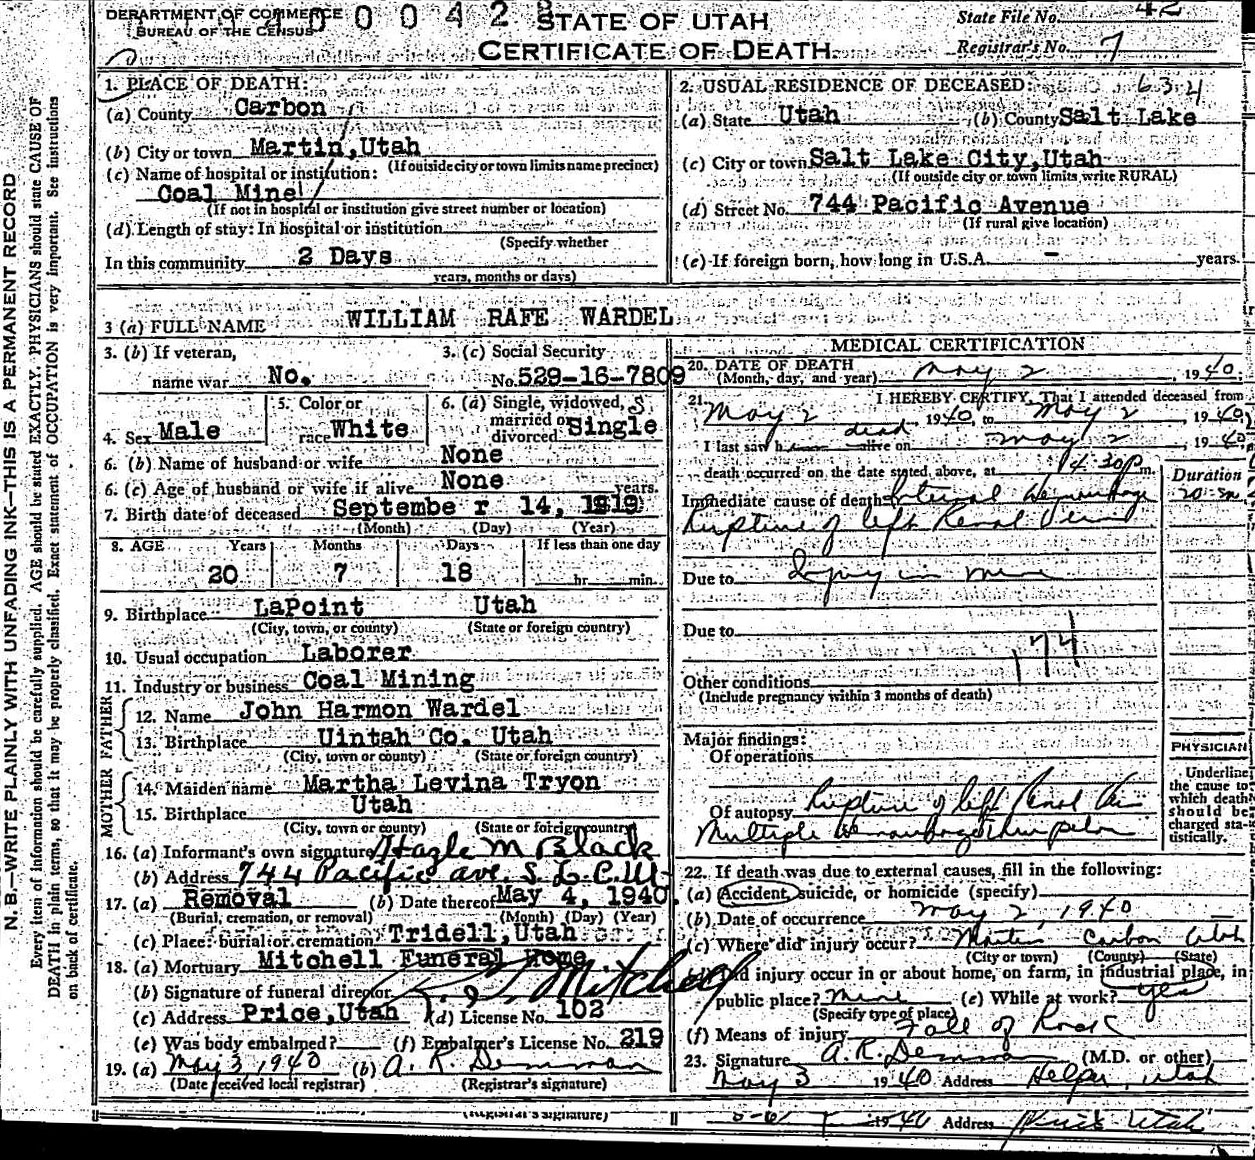 DEPARTMENT OF COMMERCE
BUREAU OF THE CENSUS
0 0 4 2
STATE OF UTAH
CERTIFICATE OF DEATH
State File No. 42
Registrar's No. 7
N. B.—WRITE PLAINLY WITH UNFADING INK—THIS IS A PERMANENT RECORD
Every item of information should be carefully supplied. AGE should be stated EXACTLY. PHYSICIANS should state CAUSE OF
DEATH in plain terms, so that it may be properly classified. Exact statement of OCCUPATION is very important. See instructions
on back of certificate.
1. PLACE OF DEATH:
(a) County Carbon
(b) City or town Martin, Utah
(If outside city or town limits name precinct)
(c) Name of hospital or institution:
Coal Mine
(If not in hospital or institution give street number or location)
(d) Length of stay: In hospital or institution
(Specify whether
In this community 2 Days
years, months or days)
2. USUAL RESIDENCE OF DECEASED: 634
(a) State Utah (b) County Salt Lake
(c) City or town Salt Lake City, Utah
(If outside city or town limits write RURAL)
(d) Street No. 744 Pacific Avenue
(If rural give location)
(e) If foreign born, how long in U.S.A. — years.
3 (a) FULL NAME WILLIAM RAFE WARDEL
3. (b) If veteran,
name war No.
3. (c) Social Security
No. 529-16-7809
4. Sex Male
5. Color or
race White
6. (a) Single, widowed, S
married or
divorced Single
6. (b) Name of husband or wife None
6. (c) Age of husband or wife if alive None years.
7. Birth date of deceased Septembe r 14, 1919
(Month) (Day) (Year)
8. AGE Years Months Days If less than one day
20 7 18 hr. min.
9. Birthplace LaPoint Utah
(City, town, or county) (State or foreign country)
10. Usual occupation Laborer
11. Industry or business Coal Mining
FATHER
12. Name John Harmon Wardel
13. Birthplace Uintah Co. Utah
(City, town or county) (State or foreign country)
MOTHER
14. Maiden name Martha Levina Tryon
15. Birthplace Utah
(City, town or county) (State or foreign country)
16. (a) Informant's own signature Hazle M Black
(b) Address 744 Pacific ave. S. L. C. Ut
17. (a) Removal (b) Date thereof May 4, 1940.
(Burial, cremation, or removal) (Month) (Day) (Year)
(c) Place: burial or cremation Tridell, Utah
18. (a) Mortuary Mitchell Funeral Home
(b) Signature of funeral director Mitchell
(c) Address Price, Utah (d) License No. 102
(e) Was body embalmed? (f) Embalmer's License No. 219
19. (a) May 3, 1940 (b) A. R. Demman
(Date received local registrar) (Registrar's signature)
MEDICAL CERTIFICATION
20. DATE OF DEATH
(Month, day, and year) May 2, 1940;
21. I HEREBY CERTIFY, That I attended deceased from
May 2 1940, to May 2, 1940;
I last saw h dead alive on May 2, 1940
death occurred on the date stated above, at 4:30 P m.
Duration
Immediate cause of death Internal Hemorrhage 20 m
Rupture of left Renal Vein
Due to Injury in mine
Due to
174
Other conditions
(Include pregnancy within 3 months of death)
Major findings:
Of operations
Of autopsy Rupture of left Renal Vein
Multiple Hemorrhages
PHYSICIAN
Underline
the cause to
which death
should be
charged sta-
tistically.
22. If death was due to external causes, fill in the following:
(a) Accident, suicide, or homicide (specify)
(b) Date of occurrence May 2, 1940
(c) Where did injury occur? Martin Carbon Utah
(City or town) (County) (State)
Did injury occur in or about home, on farm, in industrial place, in
public place? mine (e) While at work? yes
(Specify type of place)
(f) Means of injury Fall of Rock
23. Signature A. R. Demman (M.D. or other)
May 3 1940 Address Helper, Utah
(Registrar's signature)
1940 Address Utah